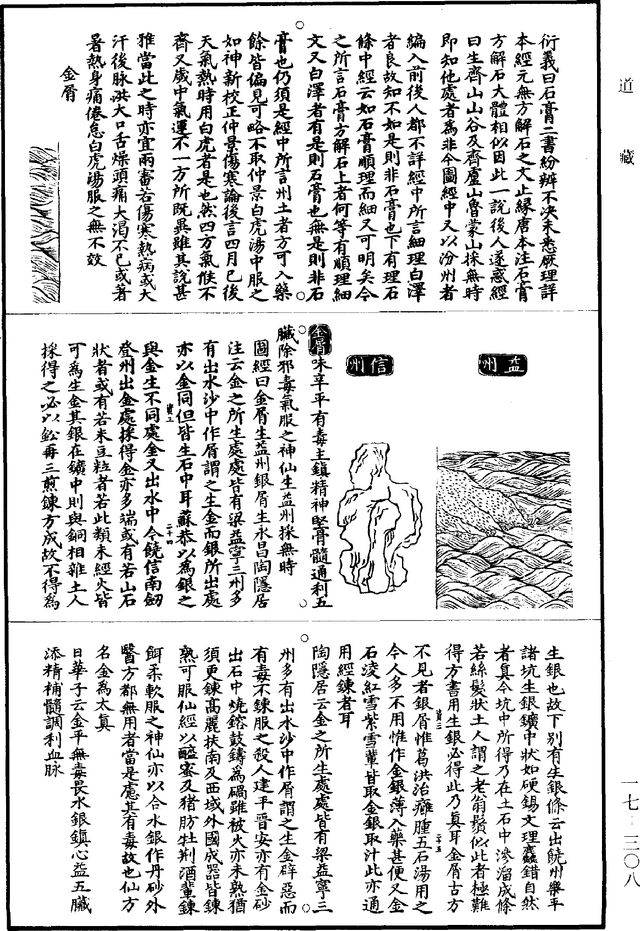 道藏
衍義曰石膏二書紛辨不決未悉厥理詳
本經元無方解石之文止緣唐本注石膏
方解石大體相似因此一說後人遂惑經
曰生齊山山谷及齊盧山魯蒙山採無時
即知他處者為非今圖經中又以汾州者
編入前後人都不詳經中所言細理白澤
者良故知不如是則非石膏也下有理石
條中經云如石膏順理而細又可明矣今
之所言石膏方解石上者何等有順理細
文又白澤者有是則石膏也無是則非石
膏也仍須是經中所言州土者方可入藥
餘皆偏見可略不取仲景白虎湯中服之
如神新校正仲景傷寒論後言四月已後
天氣熱時用白虎者是也然四方氣候不
齊又歲中氣運不一方所既異雖其說甚
雅當此之時亦宜兩審若傷寒熱病或大
汗後脉洪大口舌燥頭痛大渴不已或著
暑熱身痛倦怠白虎湯服之無不效
金屑
益州
信州
金屑味辛平有毒主鎮精神堅骨髓通利五
臟除邪毒氣服之神仙生益州採無時
圖經曰金屑生益州銀屑生永昌陶隱居
注云金之所生處處皆有梁益寧三州多
有出水沙中作屑謂之生金而銀所出處
亦以金同但皆生石中耳蘇恭以為銀之
與金生不同處金又出水中今饒信南劒
登州出金處採得金亦多端或有若山石
狀者或有若米豆粒者若此類未經火皆
可為生金其銀在鑛中則與銅相雜土人
採得之必以鈆再三煎鍊方成故不得為
生銀也故下別有生銀條云出饒州樂平
諸坑生銀鑛中狀如硬錫文理麤錯自然
者真今坑中所得乃在土石中滲溜成條
若絲髮狀土人謂之老翁鬚似此者極難
得方書用生銀必得此乃真耳金屑古方
不見者銀屑惟葛洪治癰腫五石湯用之
今人多不用惟作金銀薄入藥甚便又金
石凌紅雪紫雪輩皆取金銀取汁此亦通
用經鍊者耳
陶隱居云金之所生處處皆有梁益寧三
州多有出水沙中作屑謂之生金辟惡而
有毒不鍊服之殺人建平晉安亦有金砂
出石中燒鎔鼓鑄為碢雖被火亦未熟猶
須更鍊高麗扶南及西域外國成器皆鍊
熟可服仙經以醯蜜及猪肪牡荆酒輩鍊
餌柔軟服之神仙亦以合水銀作丹砂外
醫方都無用者當是慮其有毒故也仙方
名金為太真
日華子云金平無毒畏水銀鎮心益五臟
添精補髓調利血脉
一七-三〇八